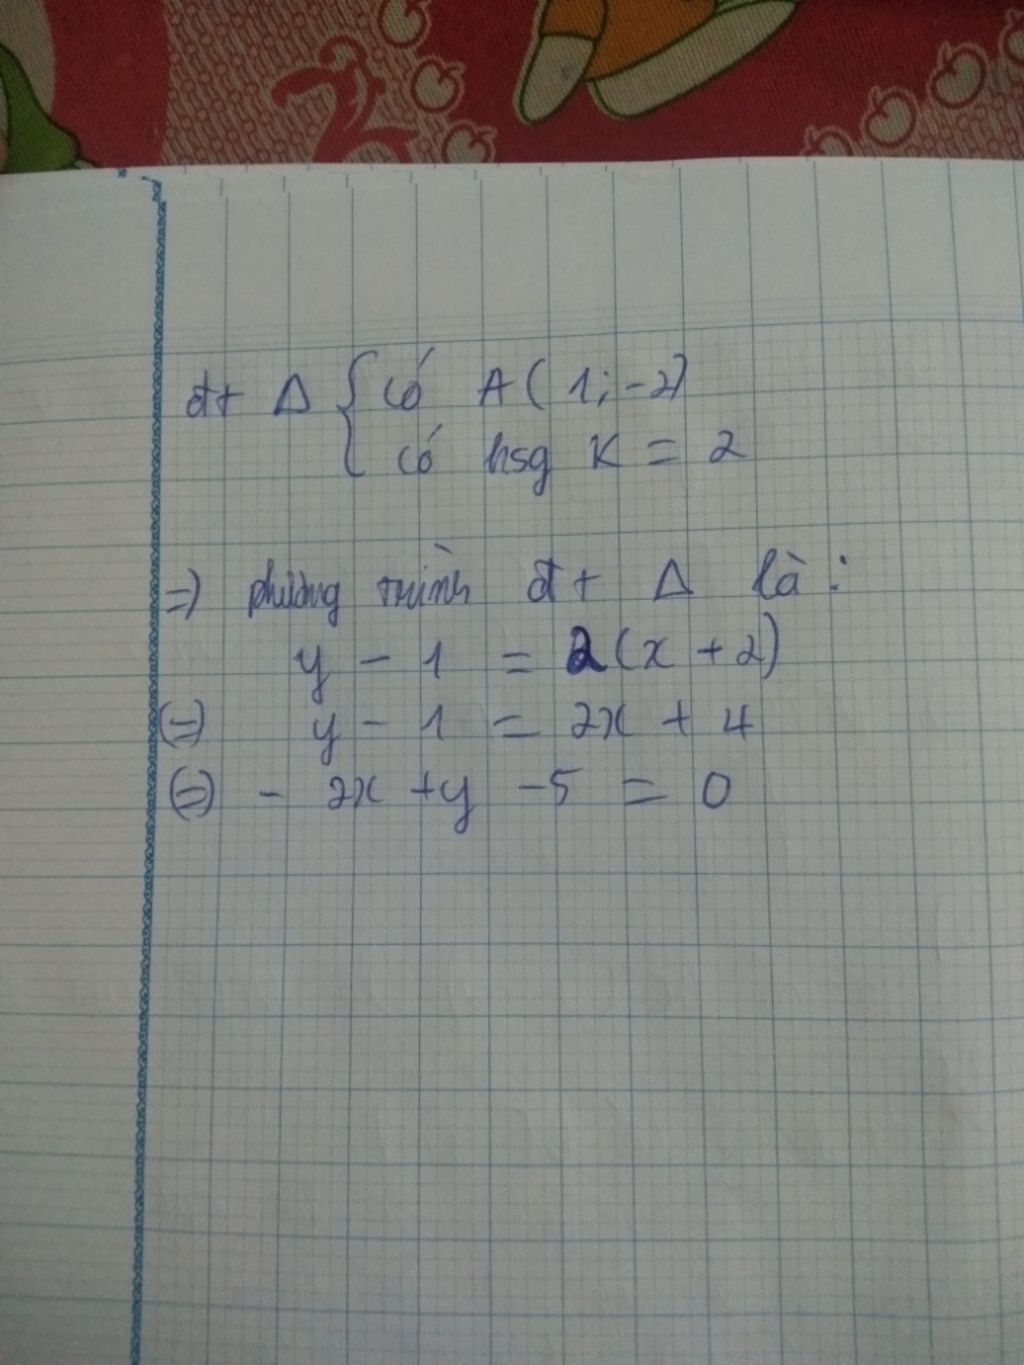 đt Δ { có A( 1; -2)
có hsg K = 2
=) phương trình đt Δ là :
y - 1 = 2(x + 2)
(=) y - 1 = 2x + 4
(=) - 2x + y - 5 = 0